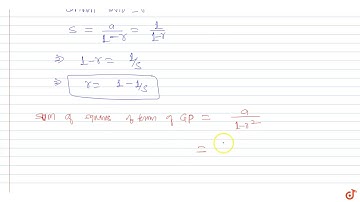 S = a/1-r = 1/1-r
⇒ 1-r = 1/s
⇒ r = 1 - 1/s
Sum of squares of term of GP = a/1-r²
=